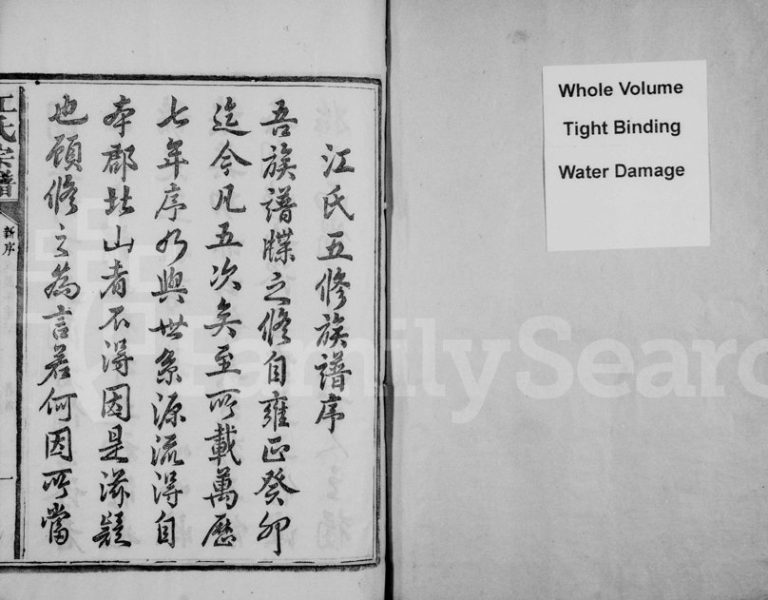 江氏五修族譜序
吾族譜牒之修自雍正癸卯
迄今凡五次矣至所載萬歷
七年序乃與世系源流得自
本郡北山者不得因是滋疑
也顧修之為言若何因所當
江氏宗譜
新序
一
Whole Volume
Tight Binding
Water Damage
FamilySearc